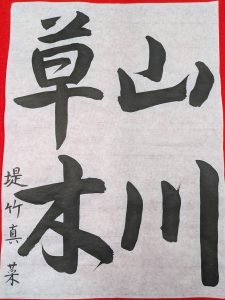 山川
草木
堤竹真菜